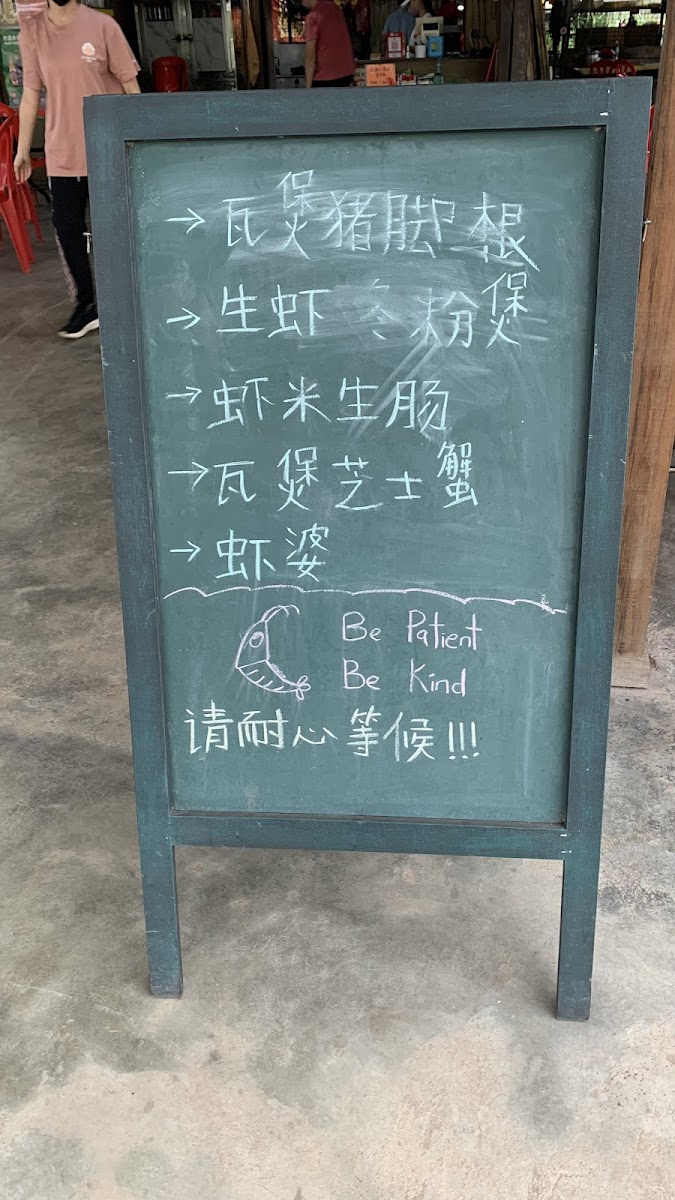 → 瓦煲猪脚根
→ 生虾冬粉煲
→ 虾米生肠
→ 瓦煲芝士蟹
→ 虾婆
Be Patient
Be Kind
请耐心等候!!!